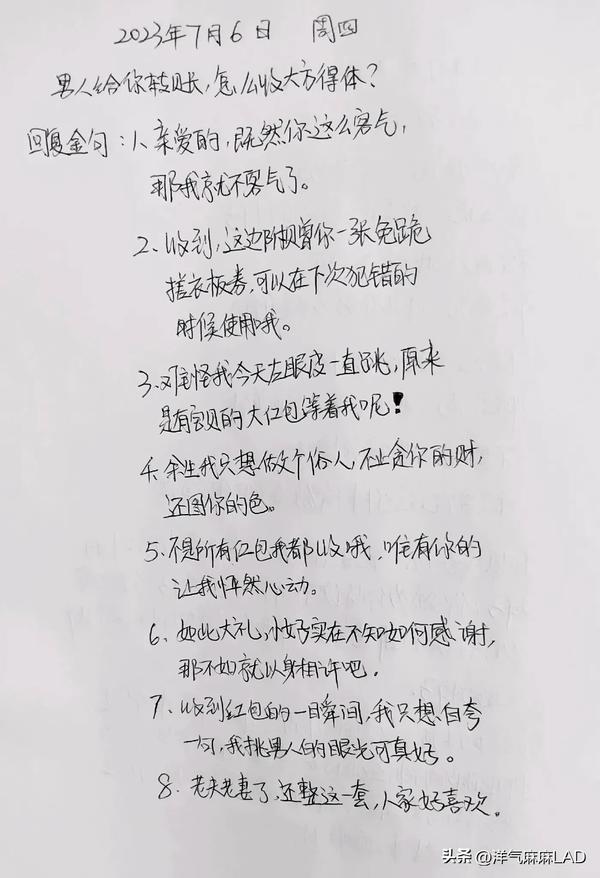 2023年7月6日 周四
男人给你转账,怎么收大方得体?
回复金句:1、亲爱的,既然你这么客气,
那我就不客气了。
2、收到,这边附赠你一张免跪
搓衣板券,可以在下次犯错的
时候使用哦。
3、难怪我今天左眼皮一直跳,原来
是有宝贝的大红包等着我呢!
4、余生我只想做个俗人,不止贪你的财,
还图你的色。
5、不是所有红包我都收哦,唯有你的
让我怦然心动。
6、如此大礼,小女子实在不知如何感谢,
那不如就以身相许吧。
7、收到红包的一瞬间,我只想自夸
一句,我挑男人的眼光可真好。
8、老夫老妻了,还整这一套,人家好喜欢。
头条 @洋气麻麻LAD